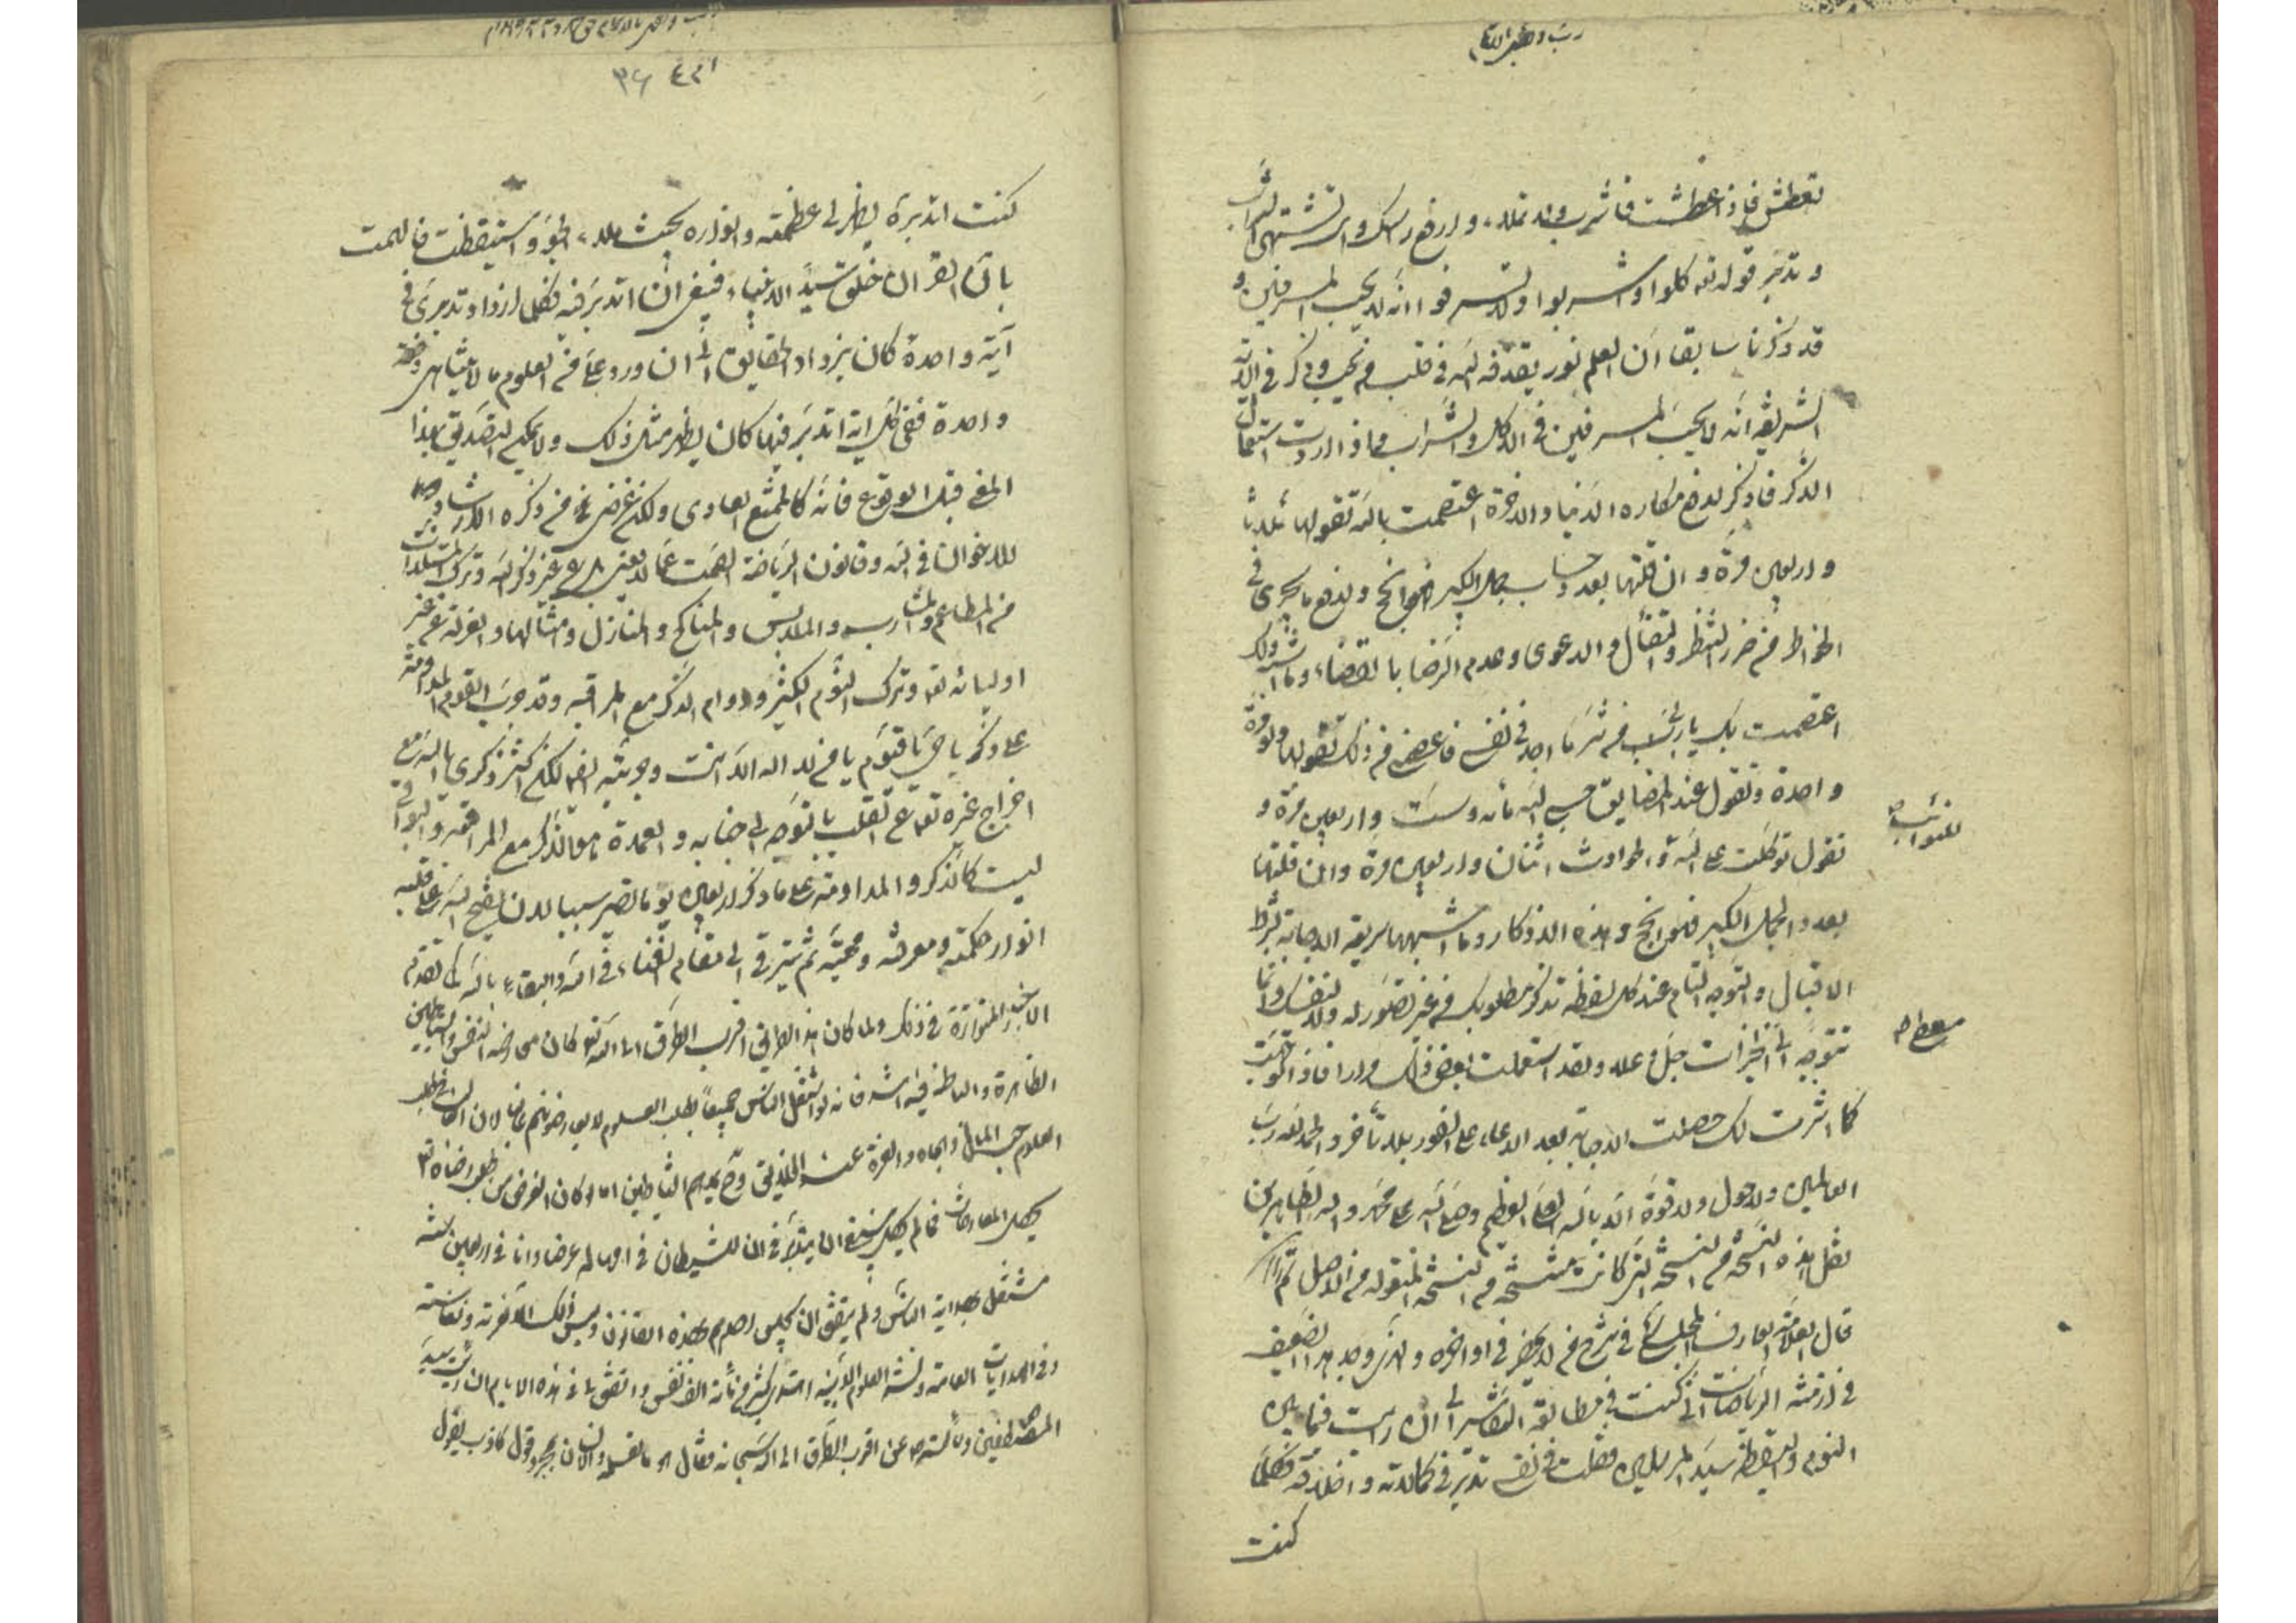 تعطش فاذا عطشت فاشرب ولا تملأ، وارفع راسك وانت تشتهى الشراب
و تدبّر قوله تعه كلوا واشربوا ولا تسرفوا انه لا يحب المسرفين و
قد ذكرنا سابقا ان العلم نور يقذفه الله فى قلب من يحب وذكر فى الاية
الشريفه انّه لا يحبّ المسرفين فى الاكل والشراب فاذا اردت استعمال
الذكر فاذكر لدفع مكاره الدنيا والاخرة اعتصمت بالله تقولها ثلاثا
واربعين مرّة و ان قلتها بعدد حساب جمل الكبير فهو انجح ولدفع ما يجرى فى
الخواطر من ضرر النظر والدعوى وعدم الرضا بالقضاء وما اشبه ذلك
اعتصمت بك يا رب من شرّ ما اجد فى نفسى فاعصمنى من ذلك تقولها ولو مرّة
واحدة وتقول عند المضايق حسبى الله مائه وست واربعين مرّة و
للنوائب ص
تقول توكلت على الله فى الحوادث اثنان واربعين مرّة وان قلتها
بعدد الجمل الكبير فهو انجح وهذه الاذكار وما اشبهها سريعة الاجابة بشرط
الاقبال والتوجه التام عند كل لفظة تذكر مطلوبك من غير تصوّر له ولا لنفسك وانما
تتوجّه الى جلّ وعلا ولقد استعملت بعض ذلك مرارا فاذا توجّهت
معطى ص
كما اشرت لك حصلت الاجابة بعد الدعاء على الفور بلا تأخر والحمد لله ربّ
العالمين ولا حول ولا قوّة الّا بالله العلى العظيم وصلى الله على محمّد واله الطاهرين
نقل هذه النسخة من النسخة التى كانت منتسخة من النسخة المنقوله من الاصل تم
قال العلامة العارف المجلسى فى شرح من لا يحضر فى اواخره والذى وجد هذا الضعيف
فى ازمنة الرياضات انّى كنت فى مطالعة التفاسير الى ان رايت فيما بين
النوم واليقظة سيّد المرسلين فقلت فى نفسى تدبّر فى كمالاته واخلاقه فكلّما
كنت
٣٦
كنت اتدبره يظهر لى عظمته وانواره بحيث ملاء الجوّ واستيقظت فالهمت
بانّ القران خلق سيّد الانبياء فينبغى ان اتدبّر فيه فكلما ازداد تدبرى فى
آية واحدة كان يزداد الحقايق الى ان ورد علىّ من العلوم ما لا يتناهى دفعة
واحدة ففى كل اية اتدبّر فيها كان يظهر مثل ذلك ولا يمكن التصديق بهذا
المعنى قبل الوقوع فانّه كالممتنع العادى ولكن غرضى من ذكره الارشاد
للاخوان فى الله وقانون الرياضة الصمت عمّا لا يعنى بل عن غير ذكر الله وترك المستلذات
من المطاعم والمشارب والملابس والمناكح والمنازل وامثالها والعزلة عن غير
اوليائه تعه وترك النوم الكثير ودوام الذكر مع المراقبه وقد جرّب القوم المداومة
على ذكر يا حىّ يا قيّوم يا من لا اله الّا انت وجربته ايضا لكن اكثر ذكرى يا الله مع
اخراج غيره تعه عن القلب بالتوجه الى جنابه والعمدة هو الذكر مع المراقبة والبواقى
ليست كالذكر والمداومة على ما ذكر اربعين يوما تصير سببا لان يفتح الله على قلبه
انوار حكمته ومعرفته ومحبّته ثم يترقى الى مقام الفناء فى الله والبقاء بالله كما تقدّم
الاخبار المتواترة فى ذلك ولما كان هذا الطريق اقرب الطرق الى الله تعه كان معارضه النفس والشياطين
الظاهرة والباطنة فيه اشد فانه لو اشتغل الناس جميعاً بطلب العلوم لا يعارضونهم غالبا لان الغالب فى طلب
العلوم حب المال والجاه والعزة عند الخلايق وح يمدهم الشياطين اما لو كان الغرض من طلب العلم رضاه تعه
يحصل المعارضات فما لم يحصل ينبغى ان يتدبّر فى ان للشيطان فى امهاله غرضا وانا فى اربعين سنة
مشتغل بهداية الناس ولم يتفق ان يجلس احد بهذه القانون وليس ذلك الا لعزته ونفاسته
وفى الهدايات العامة ونشر العلوم الدينيه اهتدى اكثر من مأة الف نفس واتفق لى فى هذه الايام ان رأيت سيّد
المصطفين وسألته ص عن اقرب الطرق الى الله سبحانه فقال هو ما تعلم والان بمجرد قول كاذب يقول